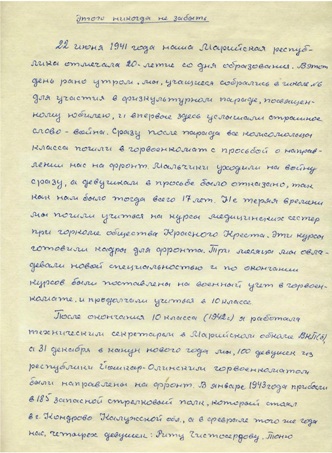 Этого никогда не забыть
22 июня 1941 года наша Марийская респуб-
лика отмечала 20-летие со дня образования. В этот
день рано утром мы, учащиеся собрались в школе
для участия в физкультурном параде, посвящен-
ному юбилею, и впервые здесь услышали страшное
слово - война. Сразу после парада все комсомольцы
класса пошли в горвоенкомат с просьбой о направ-
лении нас на фронт. Мальчики уходили на войну
сразу, а девушкам в просьбе было отказано, так
как нам было тогда всего 17 лет. Не теряя времени
мы пошли учиться на курсы медицинских сестер
при горкоме общества Красного Креста. Эти курсы
готовили кадры для фронта. Три месяца мы овла-
девали новой специальностью и по окончании
курсов были поставлены на военный учет в горвоен-
комате, и продолжали учиться в 10 классе.
После окончания 10 класса (1942г) я работала
техническим секретарем в Марийском обкоме ВКП(б)
а 31 декабря в канун нового года мы, 100 девушек из
республики Йошкар-Олинским горвоенкоматом
были направлены на фронт. В январе 1943 года прибыли
в 185 запасной стрелковый полк, который стоял
в г. Кондрова Калужской обл., а в феврале того же года
нас, четырех девушек: Риту Чистосердову, Тоню